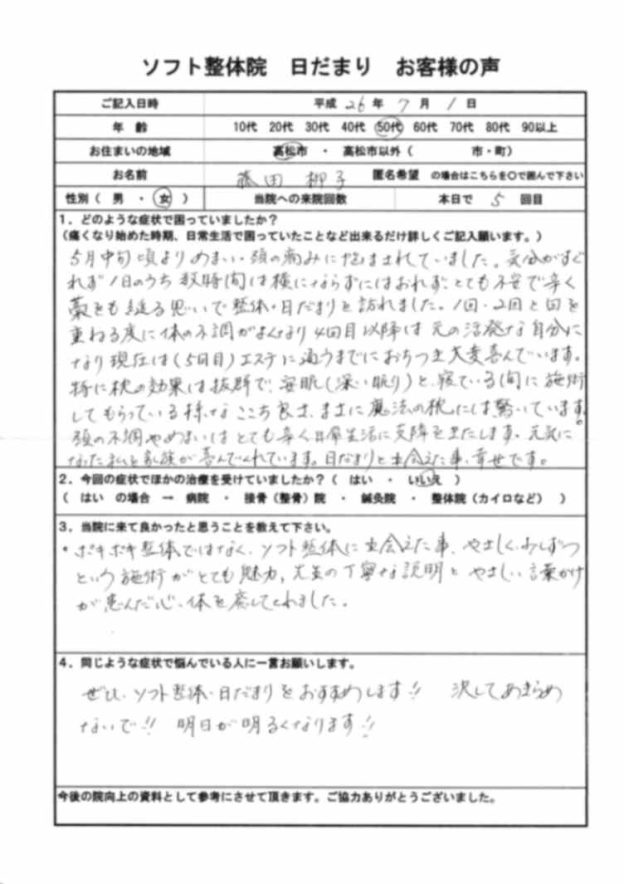 ソフト整体院 日だまり お客様の声
ご記入日時 平成 26 年 7 月 1 日
年 齢 10代 20代 30代 40代 50代 60代 70代 80代 90以上
お住まいの地域 高松市 ・ 高松市以外（ 市・町）
お名前 藤田 柳子 匿名希望 の場合はこちらを〇で囲んで下さい
性別（ 男 ・ 女 ） 当院への来院回数 本日で 5 回目
1．どのような症状で困っていましたか？
（痛くなり始めた時期、日常生活で困っていたことなど出来るだけ詳しくご記入願います。）
5月中旬頃よりめまい・頭の痛みに悩まされていました。気分がすぐ
れず1日のうち数時間は横にならずにはおれず、とても不安で辛く
藁をも縋る思いで整体・日だまりを訪れました。1回・2回と回を
重ねる度に体の不調がよくなり4回目以降は元の活発な自分に
なり現在は（5回目）エステに通うまでにおちつき大変喜んでいます。
特に枕の効果は抜群で、安眠（深い眠り）と、寝ている間に施術
してもらっている様なここち良さ、まさに魔法の枕には驚いています。
頭の不調やめまいはとても辛く日常生活に支障をきたします。元気に
なった私を家族が喜んでくれています。日だまりと出会えた事、幸せです。
2．今回の症状でほかの治療を受けていましたか？（ はい ・ いいえ ）
（ はい の場合 → 病院 ・ 接骨（整骨）院 ・ 鍼灸院 ・ 整体院（カイロなど） ）
3．当院に来て良かったと思うことを教えて下さい。
・ボキボキ整体ではなく、ソフト整体に出会えた事、やさしく、少しずつ
という施術がとても魅力、先生の丁寧な説明とやさしい言葉がけ
が患んだ心、体を癒してくれました。
4．同じような症状で悩んでいる人に一言お願いします。
ぜひ、ソフト整体・日だまりをおすすめします!! 決してあきらめ
ないで!! 明日が明るくなります!!
今後の院向上の資料として参考にさせて頂きます。ご協力ありがとうございました。